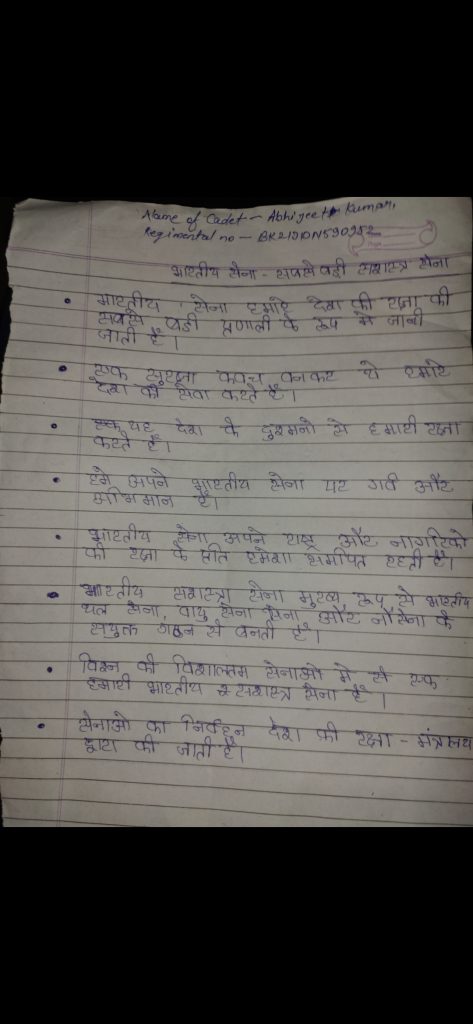 Name of Cadet - Abhijeet Kumar,
Regimental no - BR21SDN590952
भारतीय सेना - सबसे बड़ी सशस्त्र सेना
• भारतीय सेना हमारे देश की रक्षा की
सबसे बड़ी प्रणाली के रूप में जानी
जाती है।
• एक सुरक्षा कवच बनकर ये हमारे
देश की सेवा करते है।
• यह देश के दुश्मनो से हमारी रक्षा
करते है।
• हमे अपने भारतीय सेना पर गर्व और
अभिमान है।
• भारतीय सेना अपने राष्ट्र और नागरिको
की रक्षा के प्रति हमेशा समर्पित रहती है।
• भारतीय सशस्त्र सेना मुख्य रूप से भारतीय
थल सेना, वायु सेना और नौसेना के
संयुक्त गठन से बनती है।
• विश्व की विशालतम सेनाओ मे से एक
हमारी भारतीय सशस्त्र सेना है।
• सेनाओ का निर्वहन देश की रक्षा - मंत्रालय
द्वारा की जाती है।